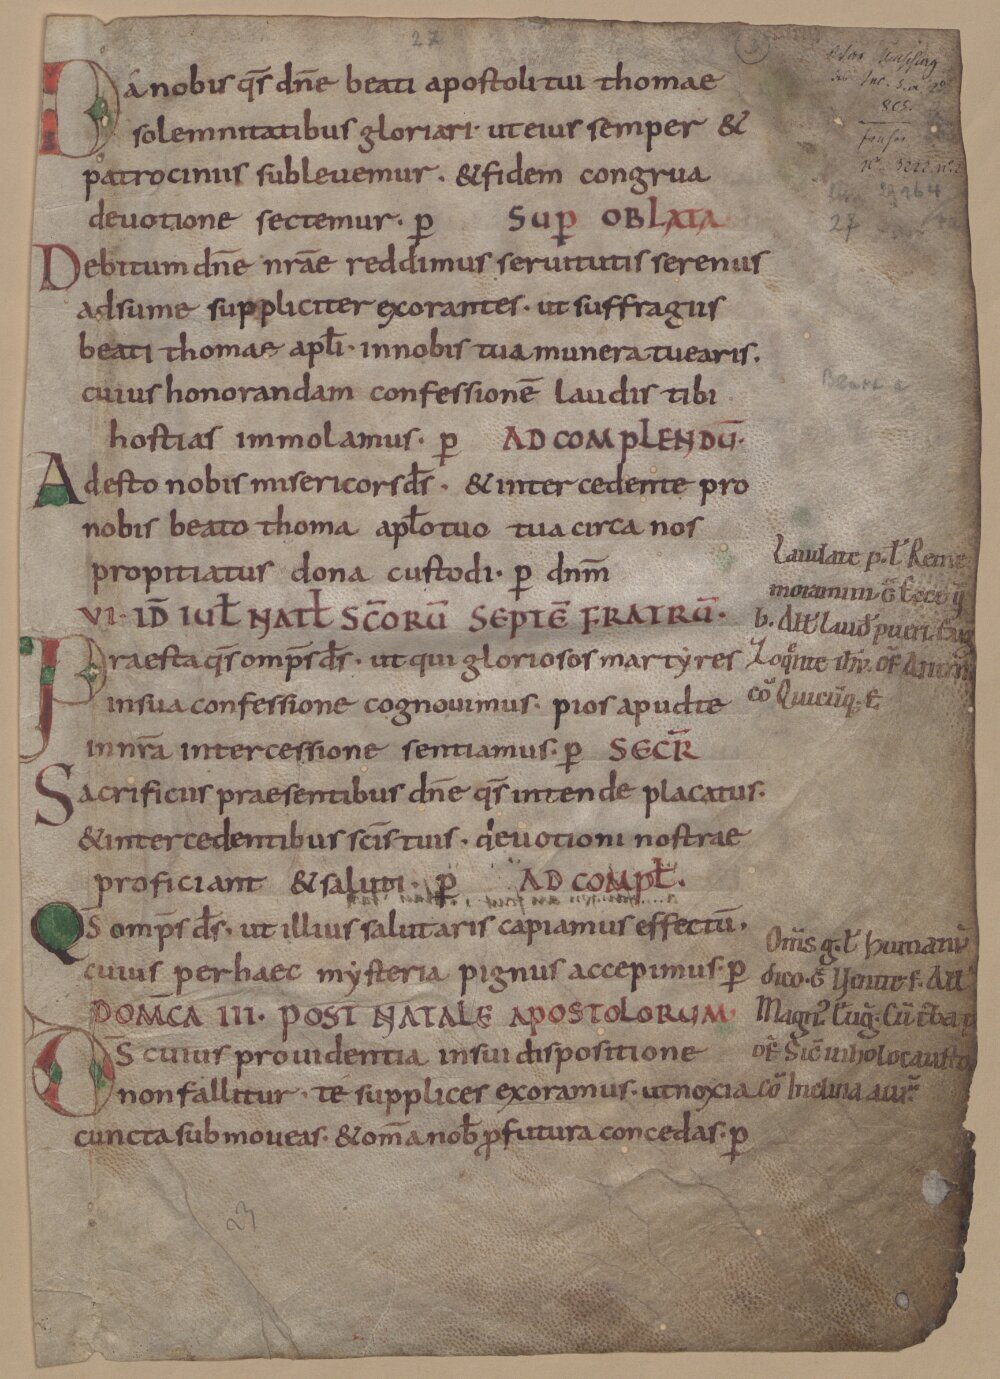 27
Da nobis q̄s dn̄e beati apostoli tui thomae
solemnitatibus gloriari· ut eius semper &
patrociniis subleuemur· & fidem congrua
deuotione sectemur· p̱ SUP̱ OBLATA
Debitum dn̄e nr̄ae reddimus seruitutis serenus
adsume suppliciter exorantes· ut suffragiis
beati thomae apl̄i· in nobis tua munera tuearis.
cuius honorandam confessionē laudis tibi
hostias immolamus· p̱ AD COMPLENDŪ·
Adesto nobis misericors d̄s· & intercedente pro
nobis beato thoma apl̄o tuo tua circa nos
propitiatus dona custodi· p̱ dnm̄
VI· ID̄ IUL̄ NATL̄ SC̄ORŪ SEPTĒ FRATRŪ·
Praesta q̄s omp̄s d̄s· ut qui gloriosos martyres
in sua confessione cognouimus· pios apud te
in nr̄a intercessione sentiamus· p̱ SECR̄
Sacrificiis praesentibus dn̄e q̄s intende placatus·
& intercedentibus sc̄is tuis· deuotioni nostrae
proficiant & saluti· p̱ AD COMPL̄.
Q̄S omp̄s d̄s· ut illius salutaris capiamus effectū·
cuius per haec mysteria pignus accepimus· p̱
DOM̄CA III· POST NATALE APOSTOLORUM·
D̄S cuius prouidentia in sui dispositione
non fallitur· te supplices exoramus· ut noxia
cuncta submoueas· & om̄a nob̄ p̱futura concedas· p̱
Laudate p. t̄
b. All̄ Laud̄ pueri.
Om̄s g. t̄ humanū
dico·
Magn̄
of̄ Sic̄ in holocausto
cō Inclina aurē
27